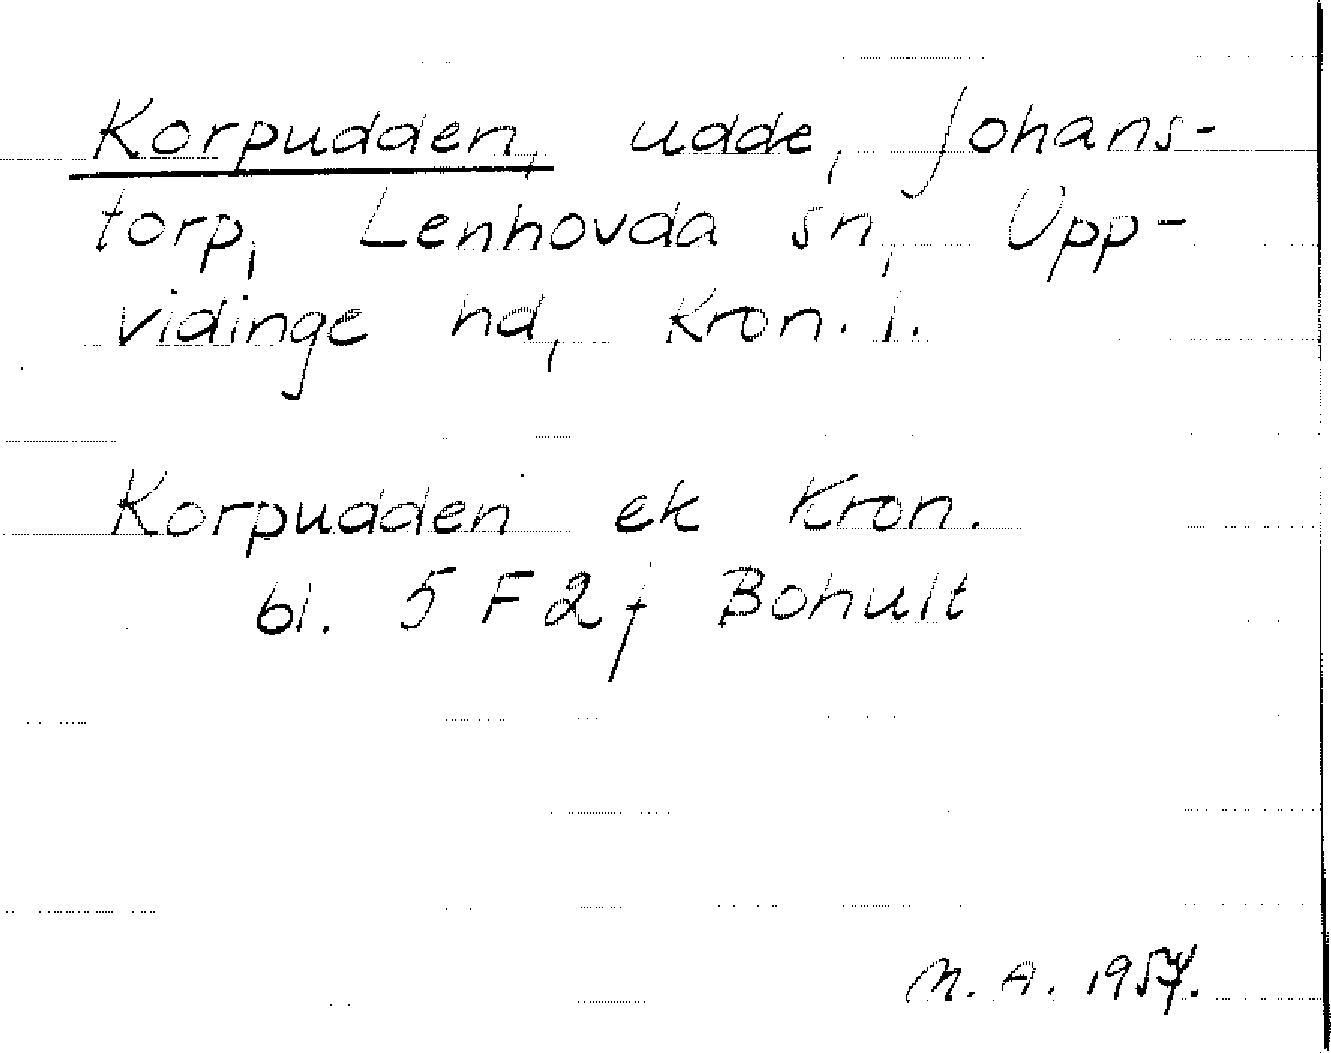 Korpudden, udde, Johans-
torp, Lenhovda sn, Upp-
vidinge hd, Kron. l.
Korpudden ek Kron.
bl. 5 F 2 f Bohult
M. A. 1957.